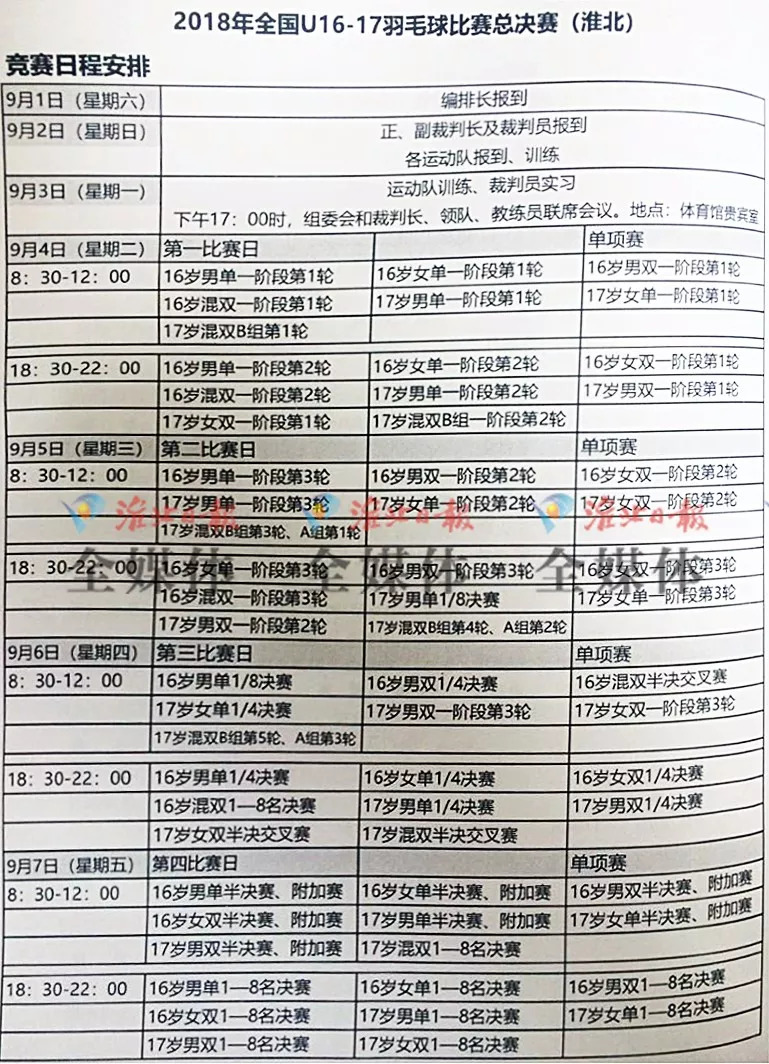 2018年全国U16-17羽毛球比赛总决赛（淮北）
竞赛日程安排
9月1日（星期六） 编排长报到
9月2日（星期日） 正、副裁判长及裁判员报到
各运动队报到、训练
9月3日（星期一） 运动队训练、裁判员实习
下午17：00时，组委会和裁判长、领队、教练员联席会议。地点：体育馆贵宾室
9月4日（星期二） 第一比赛日 单项赛
8：30-12：00 16岁男单一阶段第1轮 16岁女单一阶段第1轮 16岁男双一阶段第1轮
16岁混双一阶段第1轮 17岁男单一阶段第1轮 17岁女单一阶段第1轮
17岁混双B组第1轮
18：30-22：00 16岁男单一阶段第2轮 16岁女单一阶段第2轮 16岁女双一阶段第1轮
16岁混双一阶段第2轮 17岁男单一阶段第2轮 17岁男双一阶段第1轮
17岁女双一阶段第1轮 17岁混双B组一阶段第2轮
9月5日（星期三） 第二比赛日 单项赛
8：30-12：00 16岁男单一阶段第3轮 16岁男双一阶段第2轮 16岁女双一阶段第2轮
17岁男单一阶段第3轮 17岁女单一阶段第2轮 17岁女双一阶段第2轮
淮北日报 淮北日报 淮北日报
17岁混双B组第3轮、A组第1轮
全媒体 全媒体 全媒体
18：30-22：00 16岁女单一阶段第3轮 16岁男双一阶段第3轮 16岁女双一阶段第3轮
16岁混双一阶段第3轮 17岁男单1/8决赛 17岁女单一阶段第3轮
17岁男双一阶段第2轮 17岁混双B组第4轮、A组第2轮
9月6日（星期四） 第三比赛日 单项赛
8：30-12：00 16岁男单1/8决赛 16岁男双1/4决赛 16岁混双半决交叉赛
17岁女单1/4决赛 17岁男双一阶段第3轮 17岁女双一阶段第3轮
17岁混双B组第5轮、A组第3轮
18：30-22：00 16岁男单1/4决赛 16岁女单1/4决赛 16岁女双1/4决赛
16岁混双1—8名决赛 17岁男单1/4决赛 17岁男双1/4决赛
17岁女双半决交叉赛 17岁混双半决交叉赛
9月7日（星期五） 第四比赛日 单项赛
8：30-12：00 16岁男单半决赛、附加赛 16岁女单半决赛、附加赛 16岁男双半决赛、附加赛
16岁女双半决赛、附加赛 17岁男单半决赛、附加赛 17岁女单半决赛、附加赛
17岁男双半决赛、附加赛 17岁混双1—8名决赛
18：30-22：00 16岁男单1—8名决赛 16岁女单1—8名决赛 16岁男双1—8名决赛
16岁女双1—8名决赛 17岁男单1—8名决赛 17岁女单1—8名决赛
17岁男双1—8名决赛 17岁女双1—8名决赛